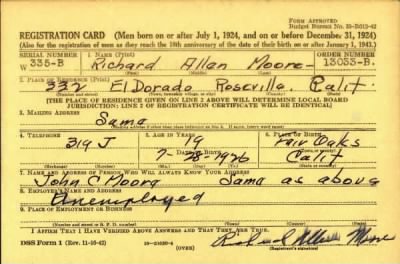 FORM APPROVED
Budget Bureau No. 33-R013-42
REGISTRATION CARD (Men born on or after July 1, 1924, and on or before December 31, 1924)
(Also for the registration of men as they reach the 18th anniversary of the date of their birth on or after January 1, 1943.)
SERIAL NUMBER 1. NAME (Print) ORDER NUMBER
W 335-B Richard Allan Moore 13033-B.
2. PLACE OF RESIDENCE (Print)
332 El Dorado Roseville, Calit
(Number and street) (Town, township, village, or city) (County) (State)
[THE PLACE OF RESIDENCE GIVEN ON LINE 2 ABOVE WILL DETERMINE LOCAL BOARD
JURISDICTION; LINE 2 OF REGISTRATION CERTIFICATE WILL BE IDENTICAL]
3. MAILING ADDRESS
Sama
4. TELEPHONE 5. AGE IN YEARS 6. PLACE OF BIRTH
319 J 19 Fair Oaks
DATE OF BIRTH
7-28-1926 Calit
(Exchange) (Number) (Mo.) (Day) (Yr.) (State or country)
7. NAME AND ADDRESS OF PERSON WHO WILL ALWAYS KNOW YOUR ADDRESS
John C Moore Sama as above
8. EMPLOYER'S NAME AND ADDRESS
Unemployed
9. PLACE OF EMPLOYMENT OR BUSINESS
(Number and street or R. F. D. number) (Town) (County) (State)
I AFFIRM THAT I HAVE VERIFIED ABOVE ANSWERS AND THAT THEY ARE TRUE.
DSS Form 1 (Rev. 11-16-42) (OVER) Richard Allan Moore
(Registrant's signature)